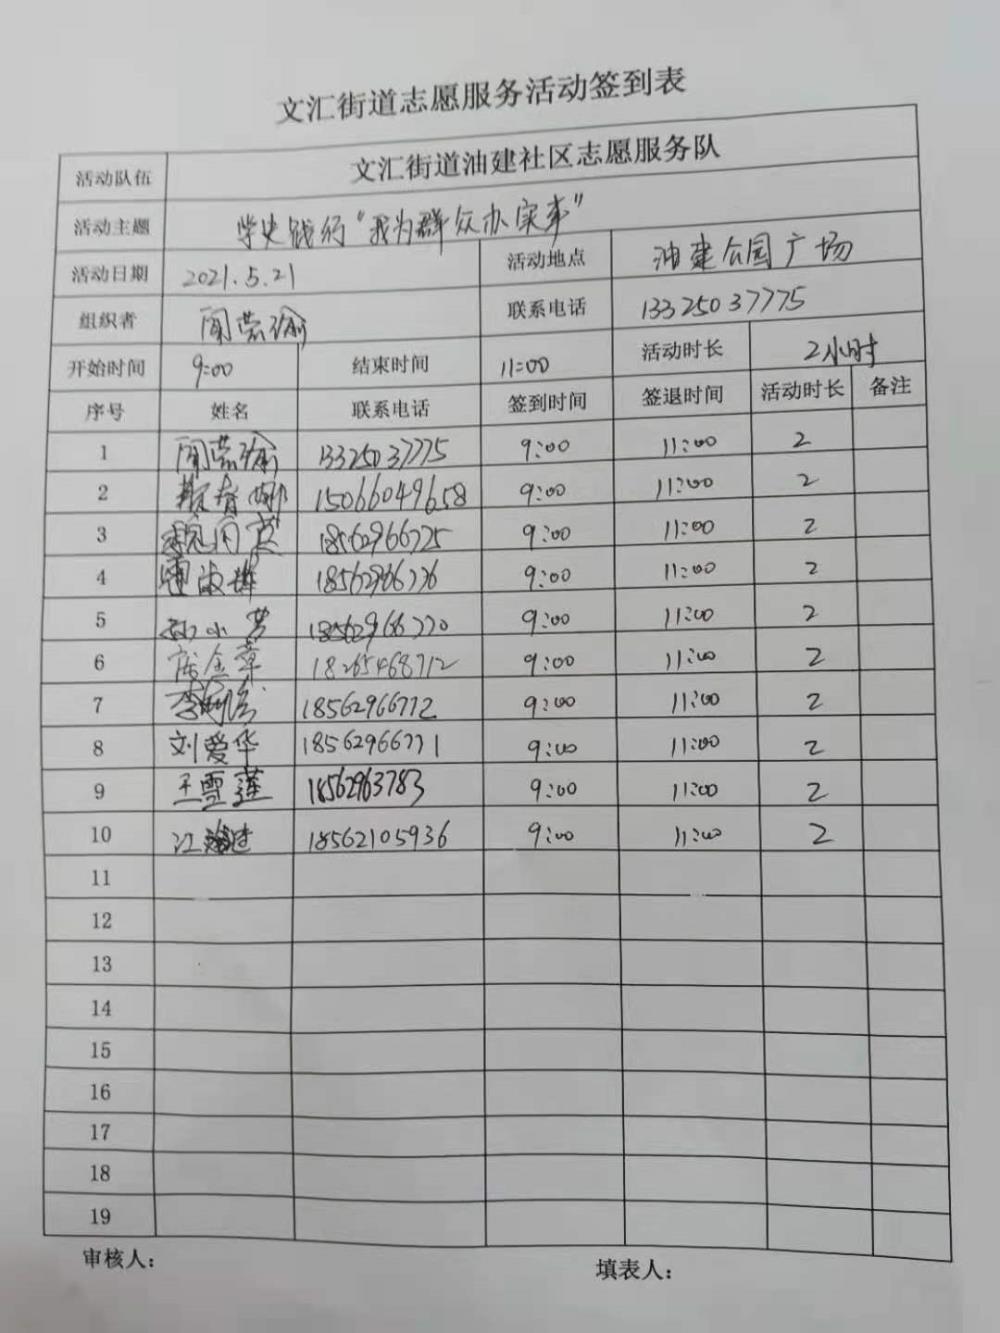 文汇街道志愿服务活动签到表
活动队伍 文汇街道油建社区志愿服务队
活动主题 学史践行“我为群众办实事”
活动日期 2021.5.21 活动地点 油建公园广场
组织者 联系电话 13325037775
开始时间 9:00 结束时间 11:00 活动时长 2小时
序号 姓名 联系电话 签到时间 签退时间 活动时长 备注
1 13325037775 9:00 11:00 2
2 15066049658 9:00 11:00 2
3 18562966725 9:00 11:00 2
4 18562966776 9:00 11:00 2
5 孙小芳 18562966770 9:00 11:00 2
6 18265468712 9:00 11:00 2
7 18562966772 9:00 11:00 2
8 刘爱华 18562966771 9:00 11:00 2
9 王雪莲 18562963783 9:00 11:00 2
10 18562105936 9:00 11:00 2
11
12
13
14
15
16
17
18
19
审核人： 填表人：